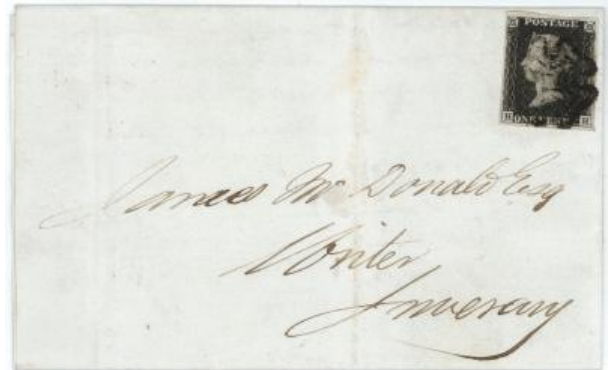 POSTAGE
ONE PENNY
James Mc Donald Esq
Writer
Inverary